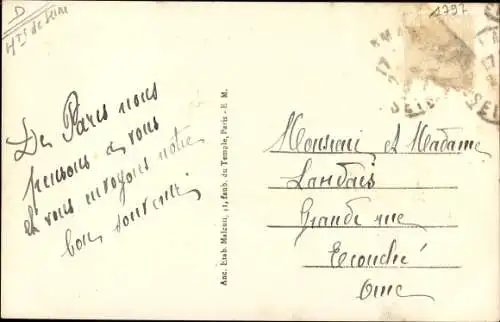 D
Hts de Seine
1797
De Paris nous
pensons à vous
et vous envoyons notre
bon souvenir.
Anc. Etab. Malcuit, 41, faub. du Temple, Paris - E. M.
Monsieur et Madame
Landais
Grande rue
Ecouché
Orne